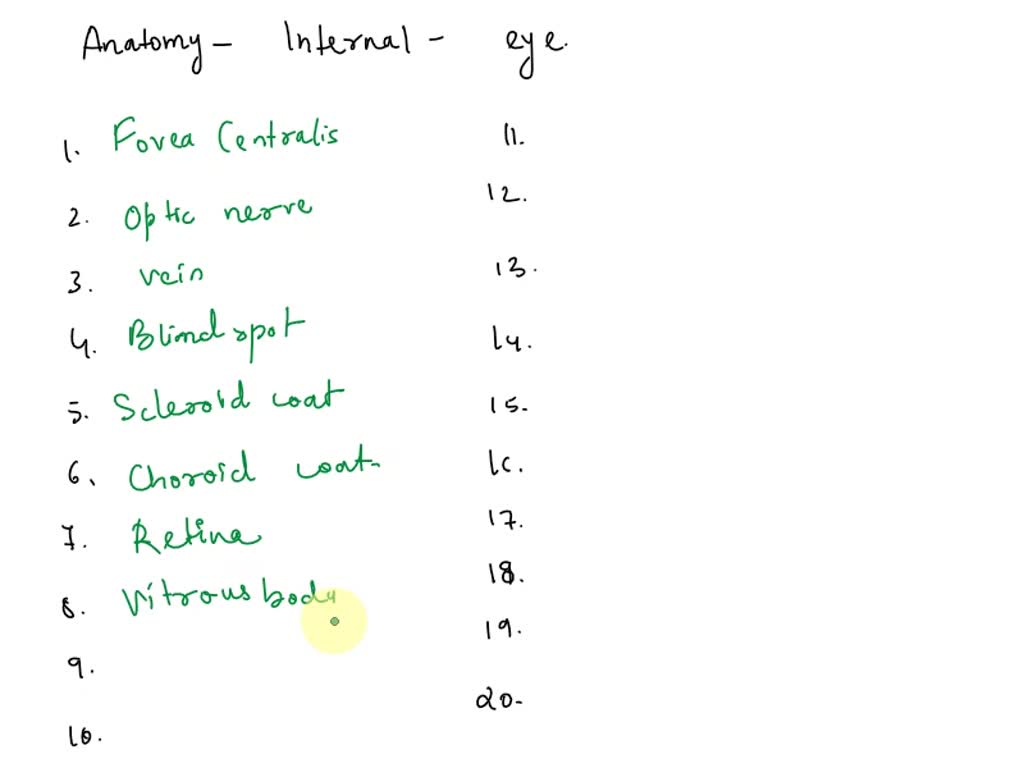 Anatomy - Internal - eye.
1. Fovea Centralis
2. Optic nerve
3. vein
4. Blind spot
5. Scleroid coat
6. Choroid coat-
7. Retina
8. Vitrous body
9.
10.
11.
12.
13.
14.
15.
16.
17.
18.
19.
20.